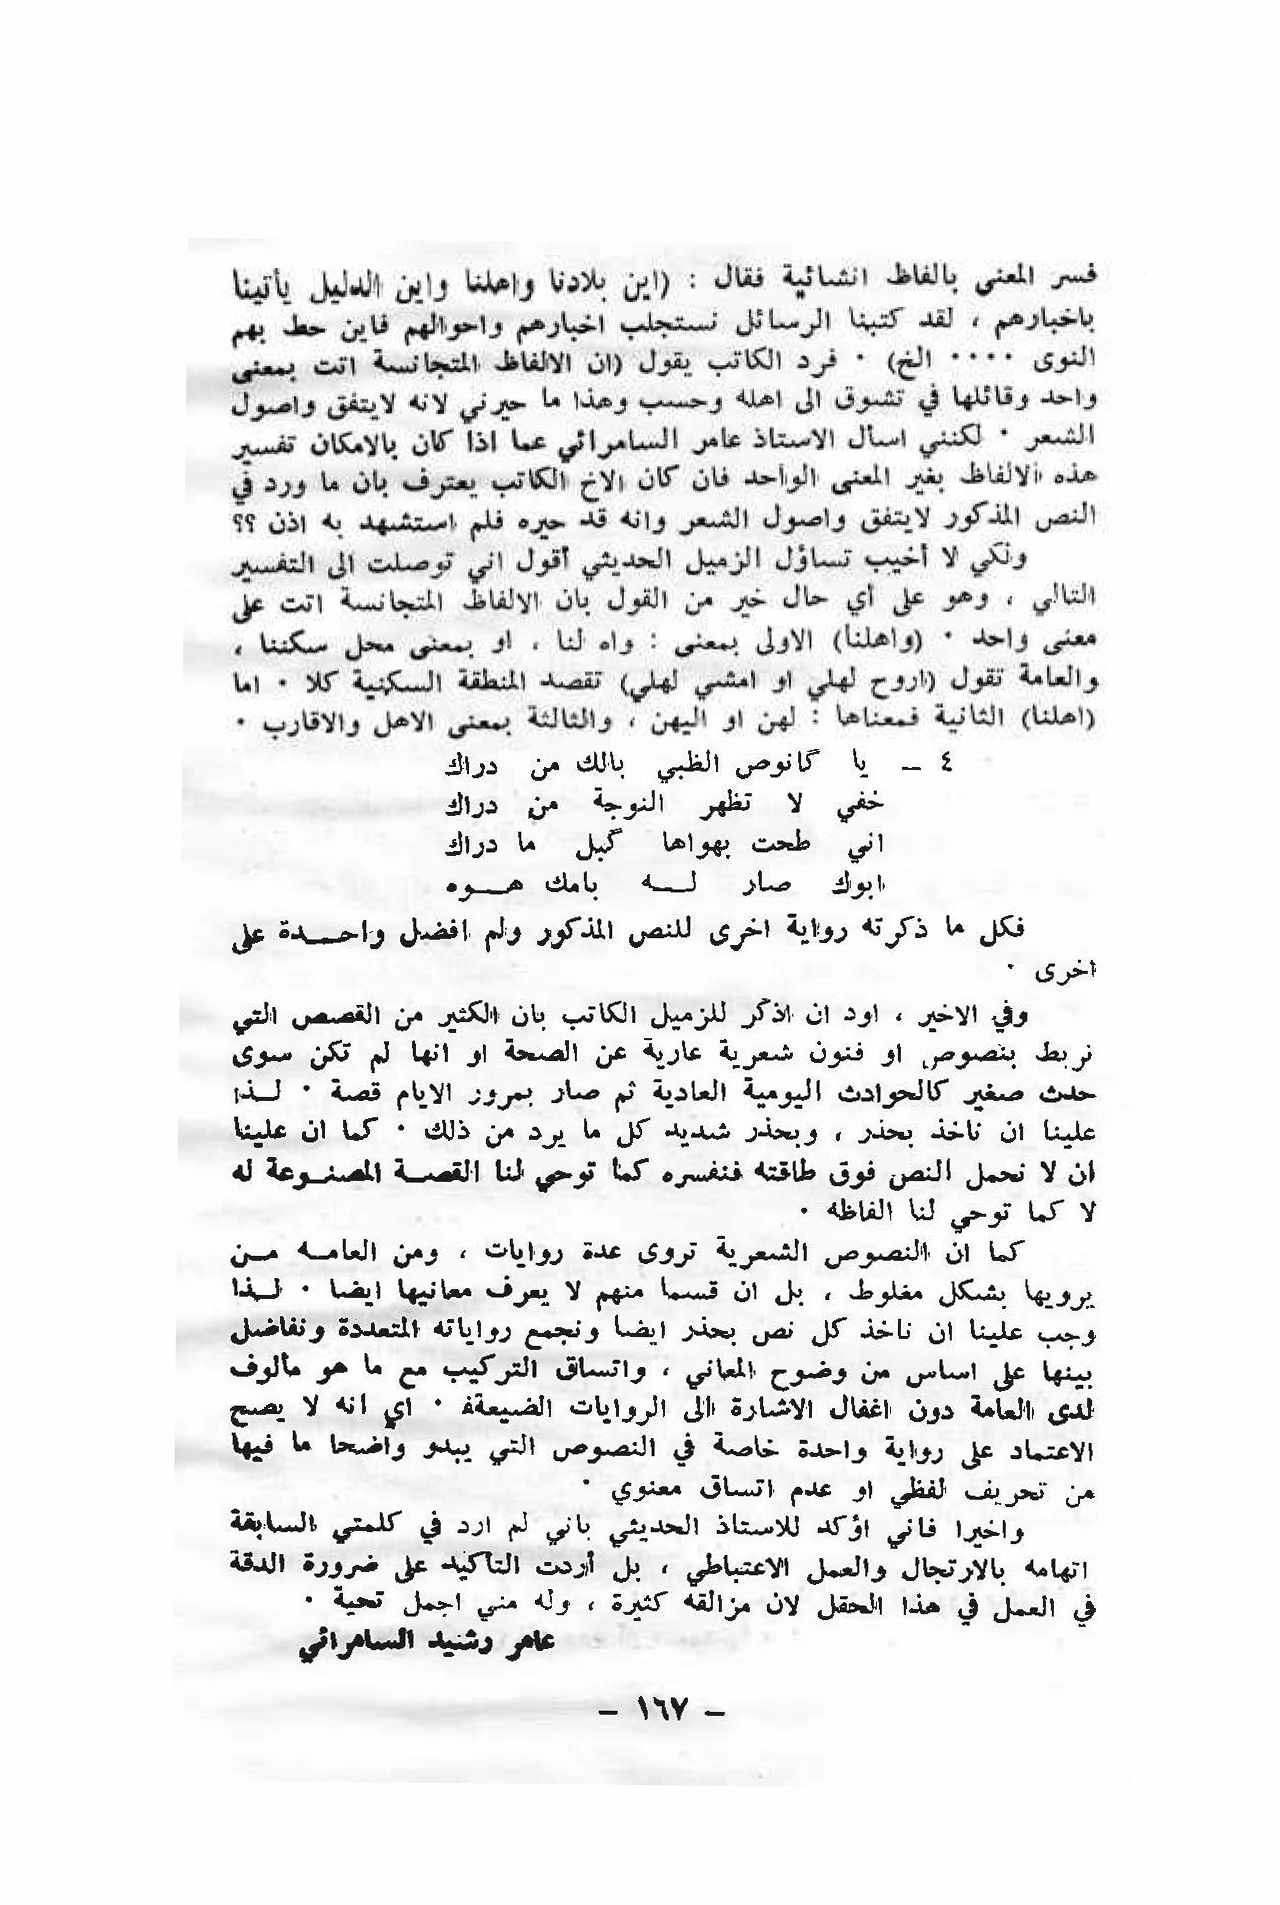 فسر المعنى بالفاظ انشائية فقال : (اين بلادنا واهلنا واين الدليل يأتينا
باخبارهم ، لقد كتبنا الرسائل نستجلب اخبارهم واحوالهم فاين حط بهم
النوى ٠٠٠٠ الخ) ٠ فرد الكاتب يقول (ان الالفاظ المتجانسة اتت بمعنى
واحد وقائلها في تشوق الى اهله وحسب وهذا ما حيرني لانه لايتفق واصول
الشعر ٠ لكنني اسأل الاستاذ عامر السامرائي عما اذا كان بالامكان تفسير
هذه الالفاظ بغير المعنى الواحد فان كان الاخ الكاتب يعترف بان ما ورد في
النص المذكور لايتفق واصول الشعر وانه قد حيره فلم استشهد به اذن ؟؟
ولكي لا أخيب تساؤل الزميل الحديثي أقول اني توصلت الى التفسير
التالي ، وهو على أي حال خير من القول بان الالفاظ المتجانسة اتت على
معنى واحد ٠ (واهلنا) الاولى بمعنى : واه لنا ، او بمعنى محل سكننا ،
والعامة تقول (اروح لهلي او امشي لهلي) تقصد المنطقة السكنية كلا ٠ اما
(اهلنا) الثانية فمعناها : لهن او اليهن ، والثالثة بمعنى الاهل والاقارب ٠
٤ ـ يا گانوص الظبي بالك من دراك
خفي لا تظهر النوجة من دراك
اني طحت بهواها گبل ما دراك
ابوك صار لـــه بامك هـــوه
فكل ما ذكرته رواية اخرى للنص المذكور ولم افضل واحـــدة على
اخرى ٠
وفي الاخير ، اود ان اذكر للزميل الكاتب بان الكثير من القصص التي
تربط بنصوص او فنون شعرية عارية عن الصحة او انها لم تكن سوى
حدث صغير كالحوادث اليومية العادية ثم صار بمرور الايام قصة ٠ لـــذا
علينا ان ناخذ بحذر ، وبحذر شديد كل ما يرد من ذلك ٠ كما ان علينا
ان لا نحمل النص فوق طاقته فنفسره كما توحي لنا القصـة المصنـوعة له
لا كما توحي لنا الفاظه ٠
كما ان النصوص الشعرية تروى عدة روايات ، ومن العامـه مـن
يرويها بشكل مغلوط ، بل ان قسما منهم لا يعرف معانيها ايضا ٠ لـــذا
وجب علينا ان ناخذ كل نص بحذر ايضا ونجمع رواياته المتعددة ونفاضل
بينها على اساس من وضوح المعاني ، واتساق التركيب مع ما هو مألوف
لدى العامة دون اغفال الاشارة الى الروايات الضيعةف ٠ اي انه لا يصح
الاعتماد على رواية واحدة خاصة في النصوص التي يبدو واضحا ما فيها
من تحريف لفظي او عدم اتساق معنوي ٠
واخيرا فاني اؤكد للاستاذ الحديثي باني لم ارد في كلمتي السابقة
اتهامه بالارتجال والعمل الاعتباطي ، بل أردت التأكيد على ضرورة الدقة
في العمل في هذا الحقل لان مزالقه كثيرة ، وله مني اجمل تحية ٠
عامر رشيد السامرائي
– ١٦٧ –